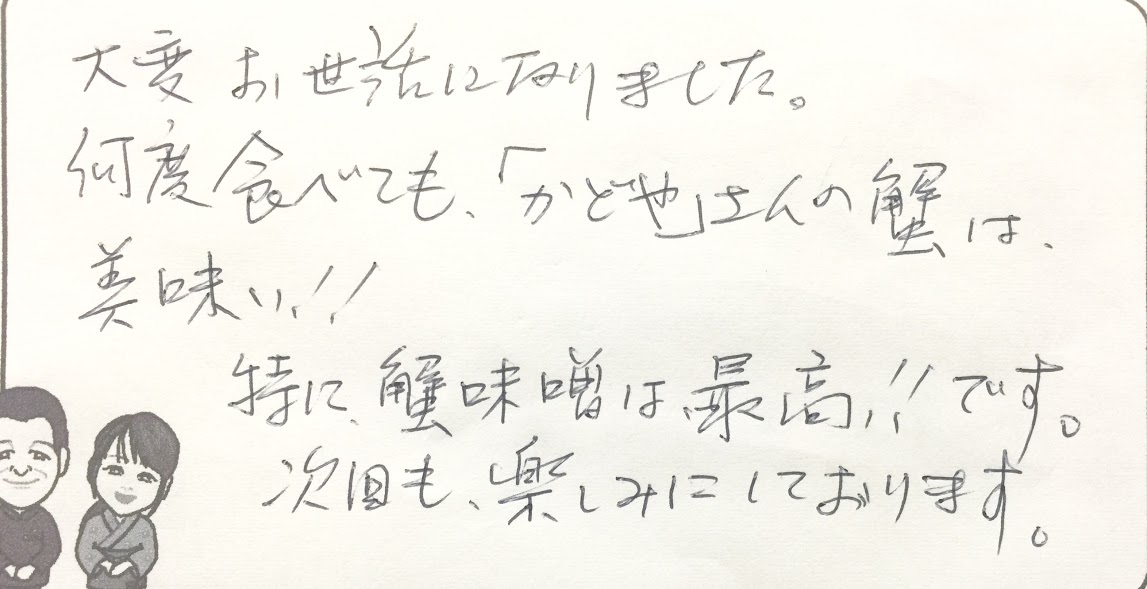 大変お世話になりました。
何度食べても、「かどや」さんの蟹は、
美味い!!
特に、蟹味噌は、最高!!です。
次回も、楽しみにしております。